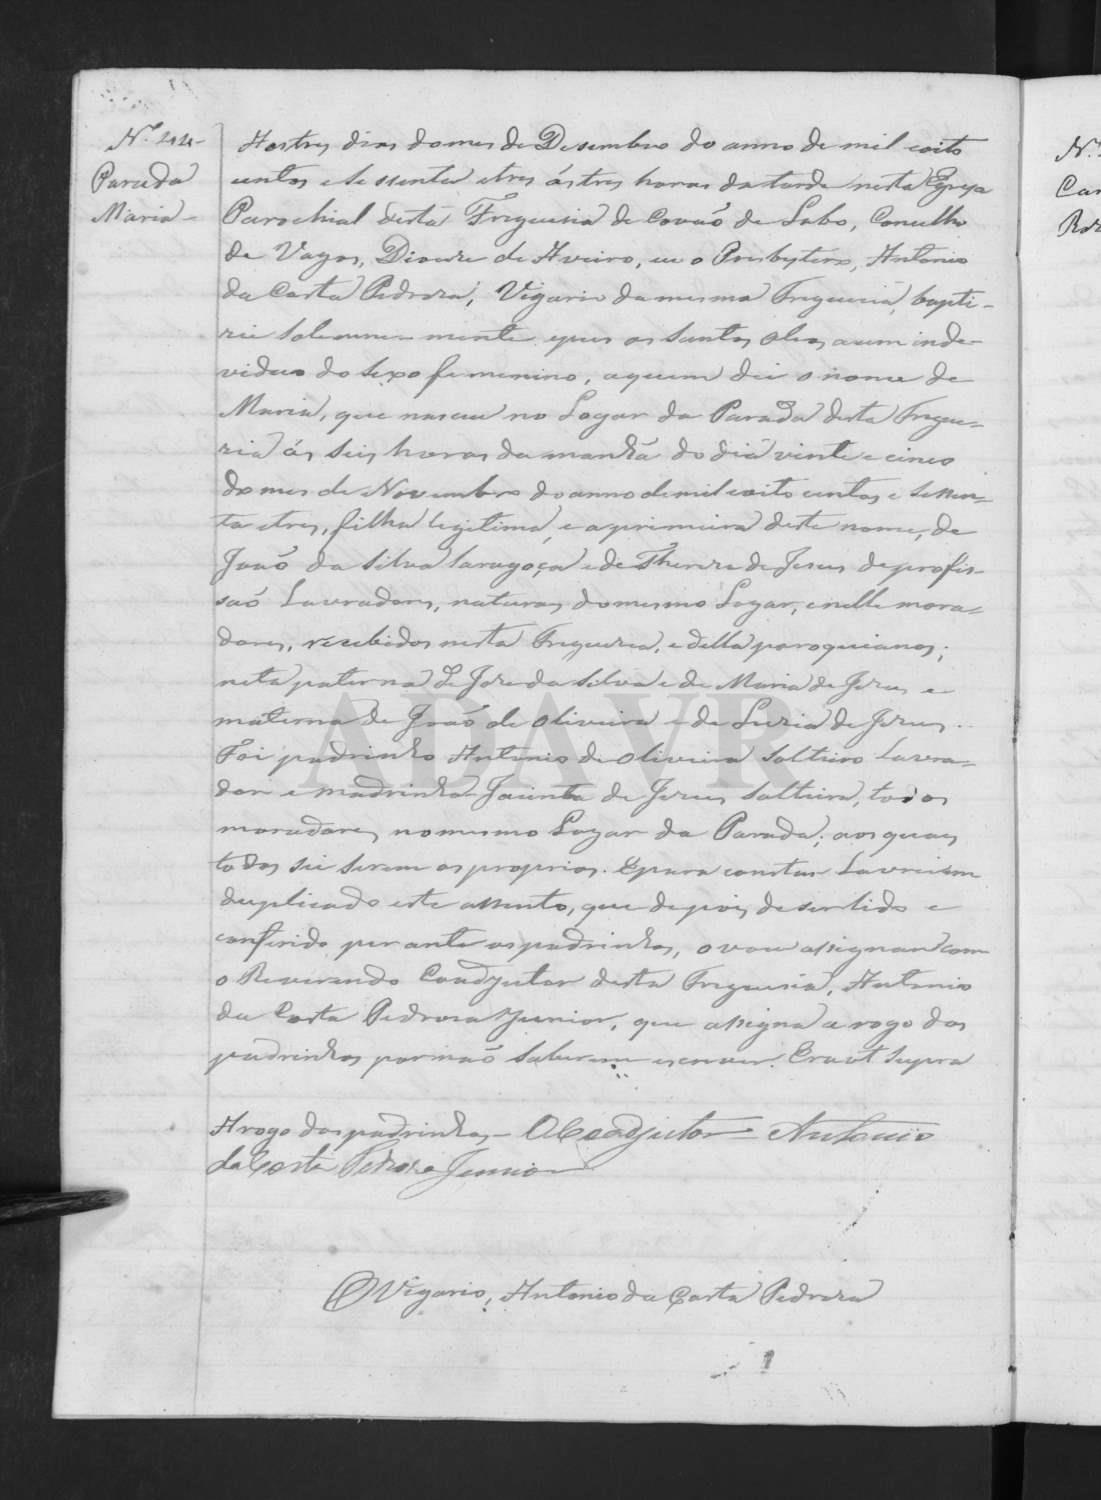 Parada
Maria -
Aos tres dias do mes de Desembro do anno de mil oito
centos e sessenta e tres ás tres horas da tarde nesta Egreja
Parochial desta Freguesia de Covaõ de Lobo, Concelho
de Vagos, Diocese de Aveiro, eu o Presbytero, Antonio
da Costa Pedroza, Vigario da mesma Freguesia, bapti-
zei solemne-mente e puz os Santos oleos a um inde-
viduo do sexo femenino, a quem dei o nome de
Maria, que nasceu no Logar da Parada desta Fregue-
zia ás seis horas da manhã do dia vinte e cinco
do mes de Novembro do anno de mil oito centos e sessen-
ta e tres, filha legitima, e a primeira deste nome, de
Joaõ da Silva Saragoça e de Thereza de Jesus de profis-
saõ Lavradores, naturaes do mesmo Logar, e nelle mora-
dores, recebidos nesta Freguezia, e della paroquianos;
neta paterna de Joze da Silva e de Maria de Jezus e
materna de Joaõ de Oliveira e de Luzia de Jezus.
Foi padrinho Antonio de Oliveira Solteiro Lavra-
dor e madrinha Jacinta de Jezus solteira, todos
moradores no mesmo Logar da Parada; aos quaes
todos sei serem os proprios. E para constar Lavrei em
duplicado este assento, que depois de ser lido e
conferido perante os padrinhos, o vou assignar com
o Reverendo Coadjutor desta Freguesia, Antonio
da Costa Pedroza Junior, que assigna a rogo dos
padrinhos por naõ saberem escrever. Era ut supra
A rogo dos padrinhos - O Coadjutor Antonio
da Costa Pedroza Junior
O Vigario, Antonio da Costa Pedroza
ADAVR
Nº